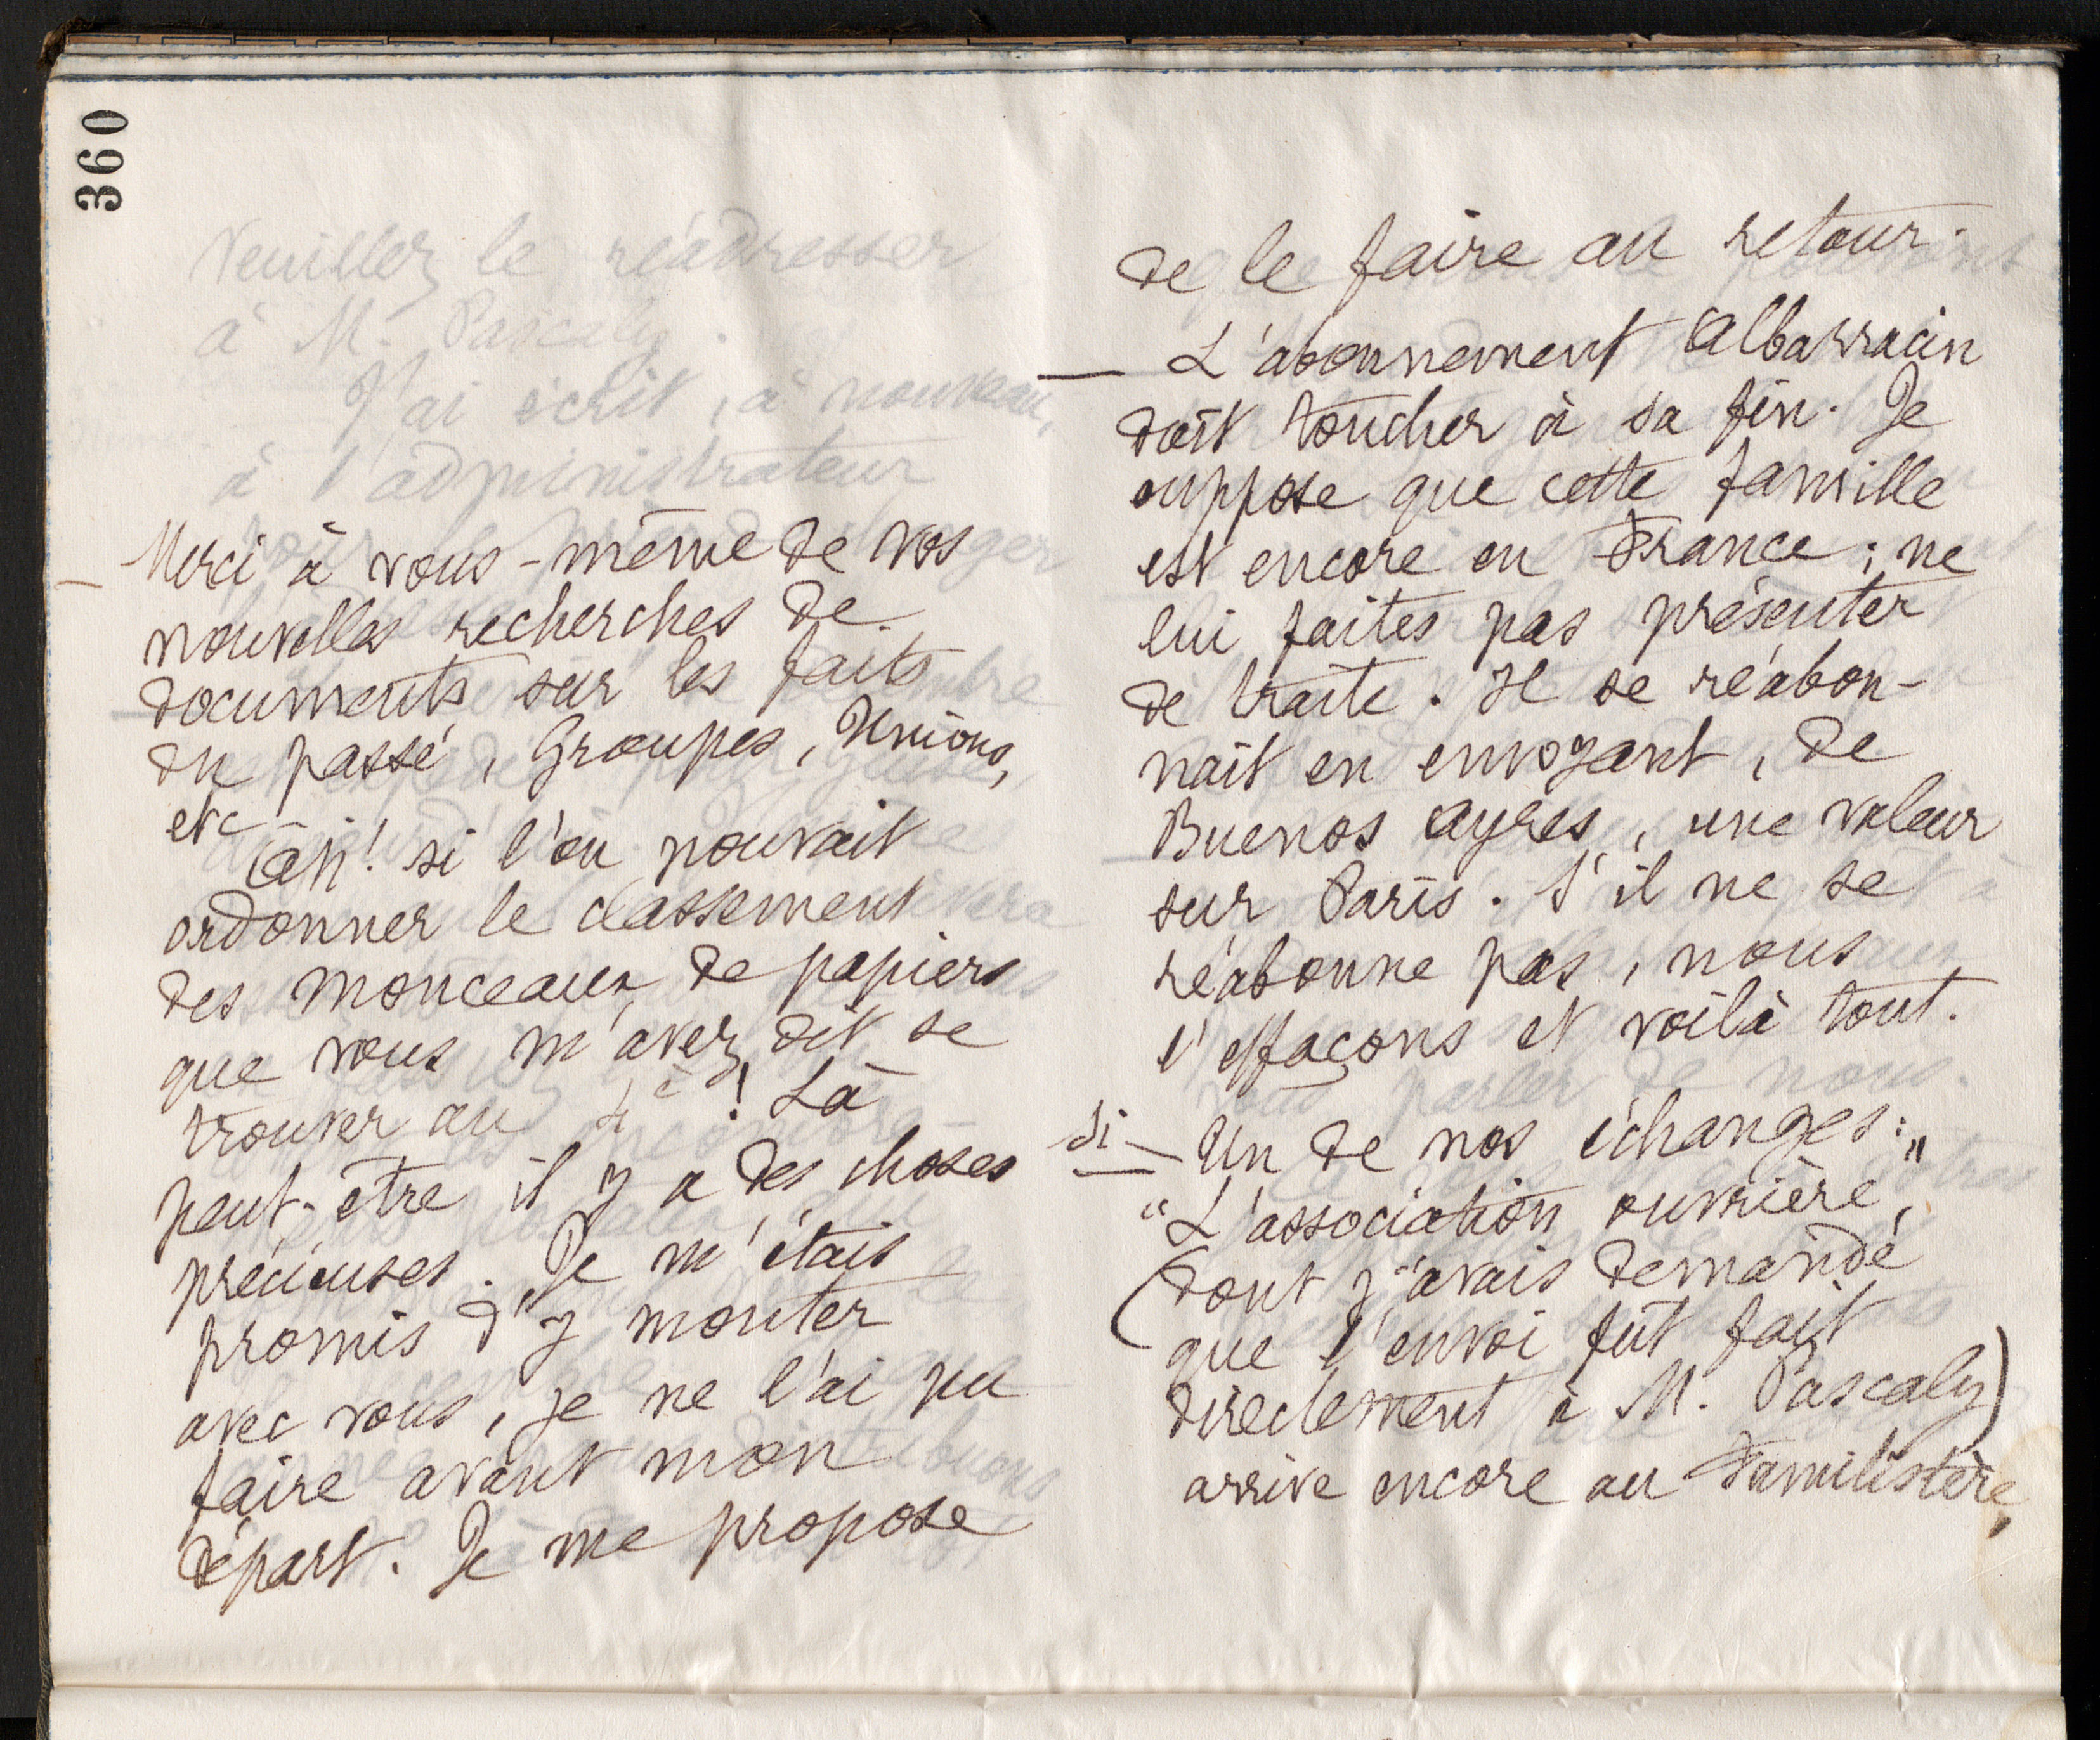 360
— Merci à vous-même de vos
nouvelles recherches de
documents sur les faits
du passé, Groupes, Unions,
etc
Ah! si l'on pouvait
ordonner le classement
des monceaux de papiers
que vous m'avez dit se
trouver au 4e! Là
peut-être il y a des choses
précieuses. Je m'étais
promis d'y monter
avec vous, je ne l'ai pu
faire avant mon
départ. Je me propose
de le faire au retour.
— L'abonnement Albarracin
doit toucher à sa fin. Je
suppose que cette famille
est encore en France; ne
lui faites pas présenter
de traite. Il se réabon-
nait en envoyant, de
Buenos Ayres, une valeur
sur Paris. S'il ne se
réabonne pas, nous
l'effaçons et voilà tout.
Si — Un de nos échanges:
"L'association ouvrière,"
(dont j'avais demandé
que l'envoi fût fait
directement à M. Pascaly)
arrive encore au Familistère,
Veuillez le réadresser
à M. Pascaly.
J'ai écrit, à nouveau,
à l'administrateur